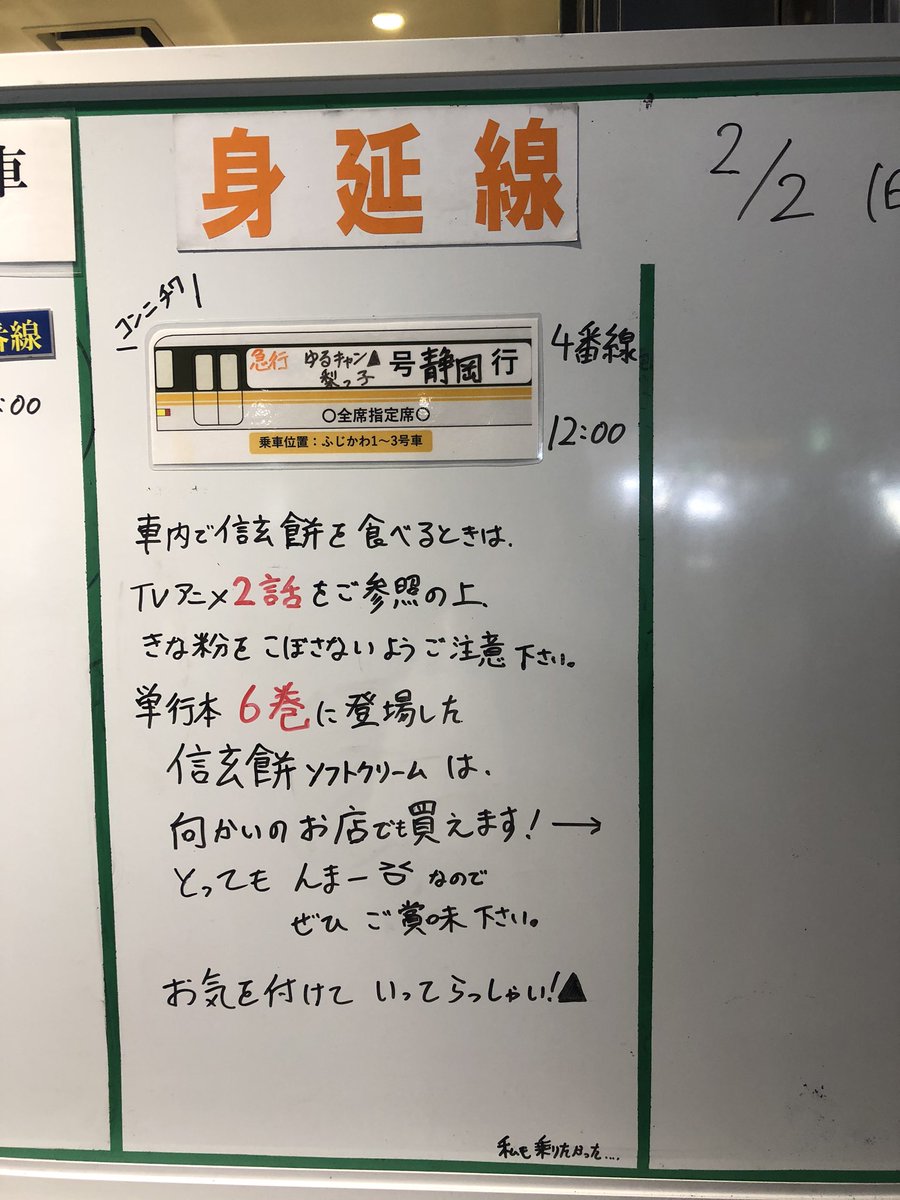 車
番線
:00
身延線
2/2 (日
コンニチワ
急行 ゆるキャン▲
梨っ子 号 静岡 行
○全席指定席○
乗車位置:ふじかわ1~3号車
4番線
12:00
車内で信玄餅を食べるときは、
TVアニメ2話をご参照の上、
きな粉をこぼさないようご注意下さい。
単行本 6巻に登場した
信玄餅ソフトクリームは、
向かいのお店でも買えます!→
とっても んまー なので
ぜひ ご賞味下さい。
お気を付けて いってらっしゃい!▲
私も乗りたかった....